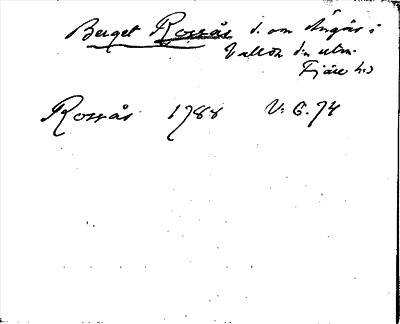 Berget Rossås s. om Ängås i
Vallda d:n utm.
Fjäre hd
Rossås 1788 V: 6.74